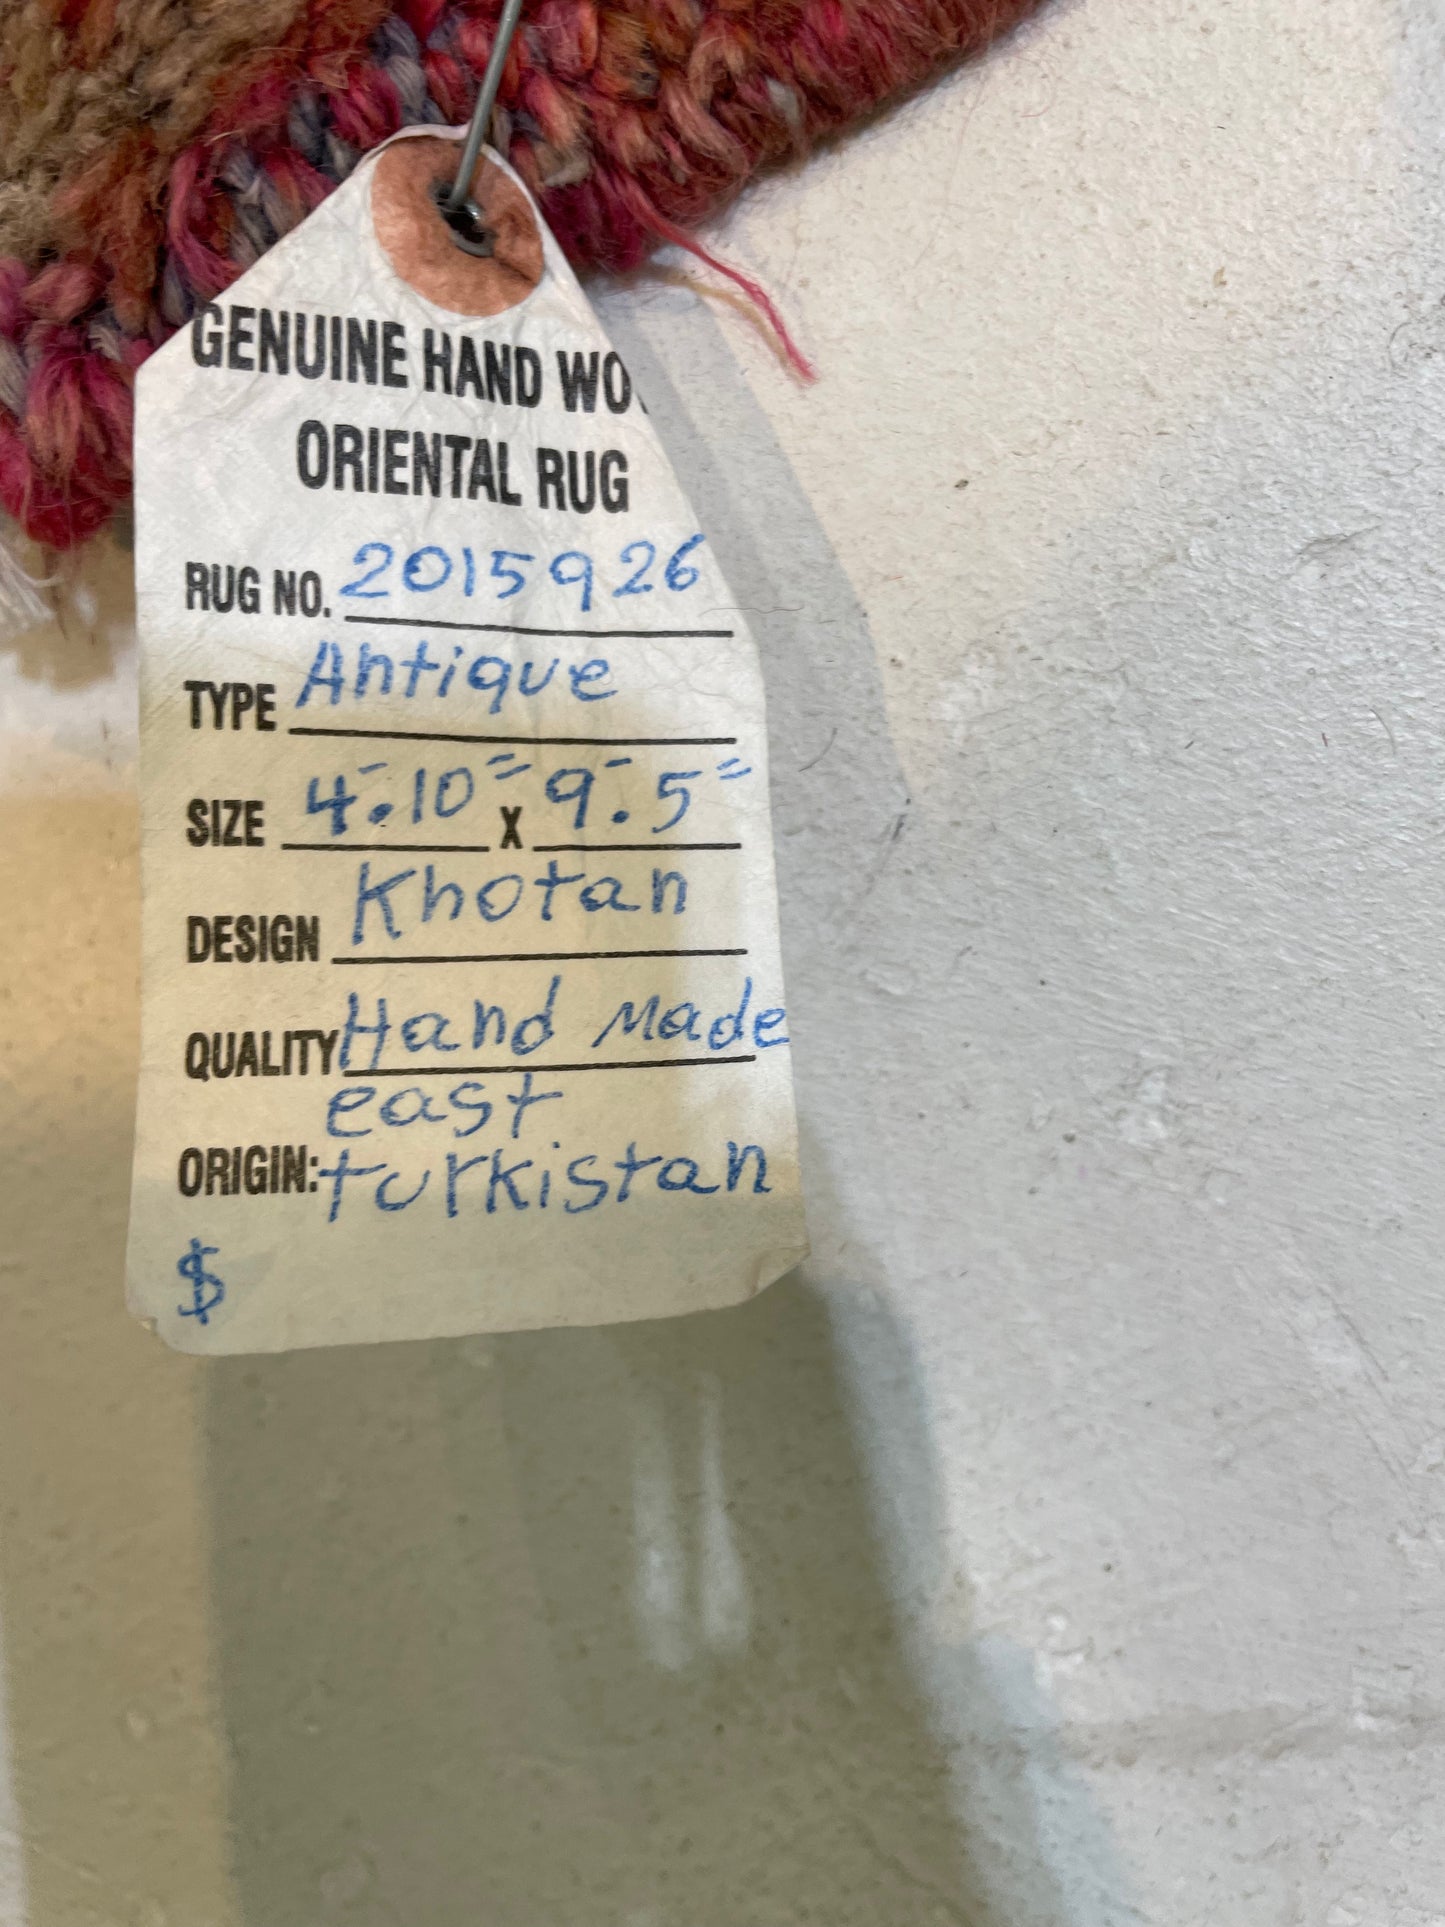 GENUINE HAND WO
ORIENTAL RUG
RUG NO. 2015926
TYPE Antique
SIZE 4'.10" x 9'.5"
DESIGN Khotan
QUALITY Hand Made
east
ORIGIN: turkistan
$